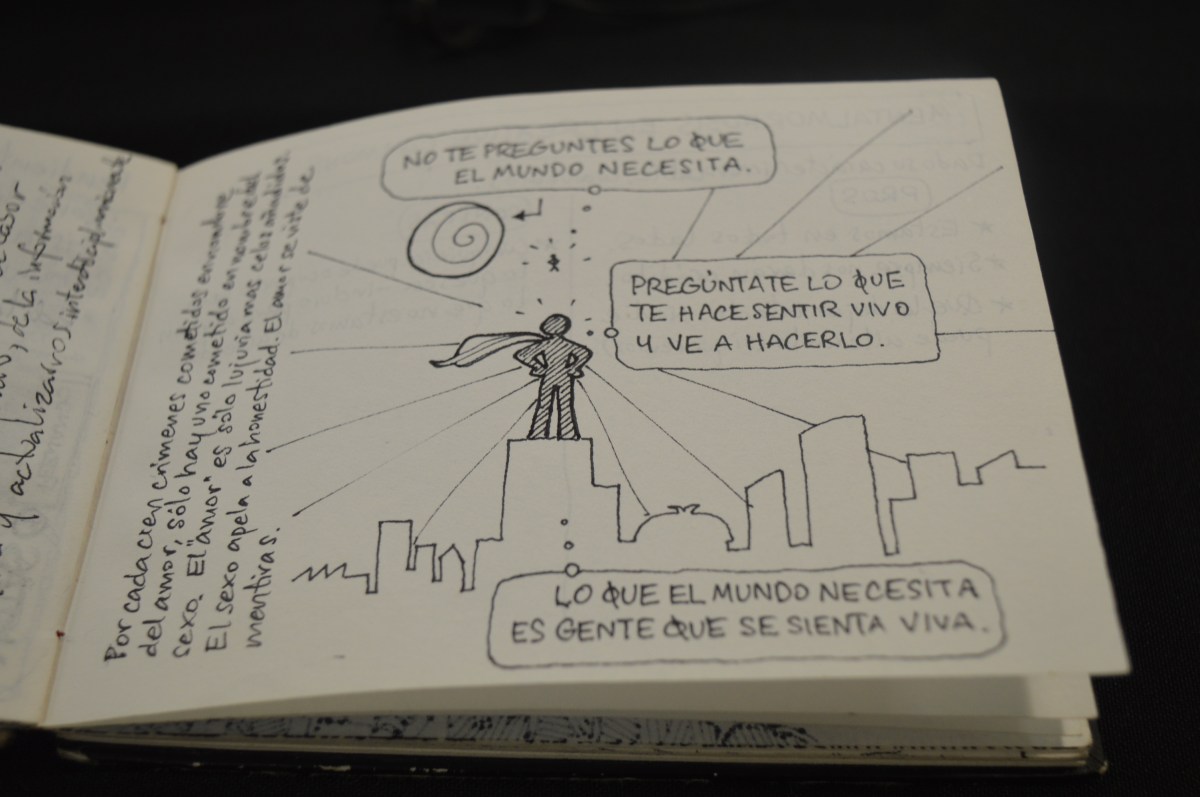 labor
, de la información
y actualizarnos interdisciplinaria
Por cada cien crímenes cometidos en nombre
del amor, sólo hay uno cometido en nombre del
sexo. El "amor" es sólo lujuria mas celos añadidos.
El sexo apela a la honestidad. El amor se viste de
mentiras.
NO TE PREGUNTES LO QUE
EL MUNDO NECESITA.
PREGÚNTATE LO QUE
TE HACE SENTIR VIVO
Y VE A HACERLO.
LO QUE EL MUNDO NECESITA
ES GENTE QUE SE SIENTA VIVA.